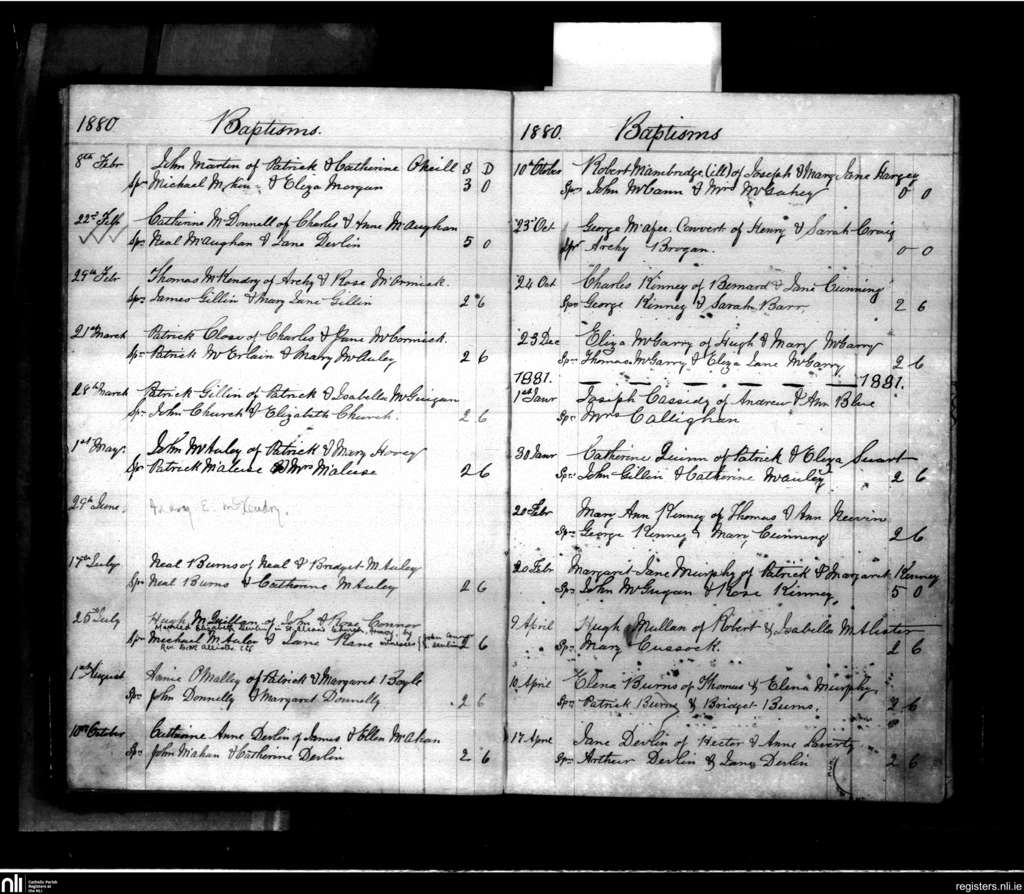 1880 Baptisms.
8th Febr John Martin of Patrick & Catherine O'Neill S D
Spr Michael & Eliza Morgan 3 0
22nd Feb Catherine McDonnell of Charles & Anne Maughan
Sps Neal Maughan & Jane Devlin 5 0
29th Febr Thomas McKendry of Archy & Rose McCormick.
Sps James Gillin & Mary Jane Gillin 2 6
21st March Patrick Close of Charles & Jane McCormick.
Sps Patrick McErlain & Mary McAuley 2 6
28th March Patrick Gillin of Patrick & Isabella McGuigan
Sp. John Church & Elizabeth Church. 2 6
1st May. John McAuley of Patrick & Mary
Spr Patrick Maluse & Mrs Maluse 2 6
29th June. E.
17th July Neal Burns of Neal & Bridget McAuley
Sps Neal Burns & Catherine McAuley 2 6
25th July Hugh McQuillan of John & Rose Connor
Married Elizabeth Devlin in St.
Sp. Michael & Jane Kane witnesses 2 6
Rev.
1st August Annie O'Malley of Patrick & Margaret Boyle
Sps John Donnelly & Margaret Donnelly 2 6
10th October Catherine Anne Devlin of James & Ellen McAhan
Sps John McAhan & Catherine Devlin 2 6
1880. Baptisms
10th October Robert Mambridge (ill) of Joseph & Mary Jane Hargey
Sps John McCann & Mrs McGahey 0 0
23rd Oct George McAfee. Convert of Henry & Sarah Craig
Spr Archy Brogan. 0 0
24 Oct Charles Kinney of Bernard & Jane Cunning
Spr George Kinney & Sarah Barr 2 6
23 Dec Eliza McGarry of Hugh & Mary McGarry
Sp. Thomas McGarry & Eliza Jane McGarry 2 6
1881. 1881.
1st Janr Joseph Cassidy of Andrew & Ann Blue
Sps Mrs Callighan
30 Janr Catherine Quinn of Patrick & Eliza Stuart
Sps John Gillin & Catherine McAuley 2 6
20 Febr Mary Ann Kenney of Thomas & Ann Nevin
Sps George Kenney & Mary Cunning 2 6
20 Febr Margaret Jane Murphy of Patrick & Margaret Kenney
Sps John McGugan & Rose Kinney 5 0
9 April Hugh Mullan of Robert & Isabella McAlister
Sps Mary Cussock. 2 6
10 April Elena Burns of Thomas & Elena Murphy
Sps Patrick Burns & Bridget Burns. 2 6
17 April Jane Devlin of Hector & Anne Laverty
Sps Arthur Devlin & Jane Devlin 2 6
nli Catholic Parish
Registers at
the NLI
registers.nli.ie